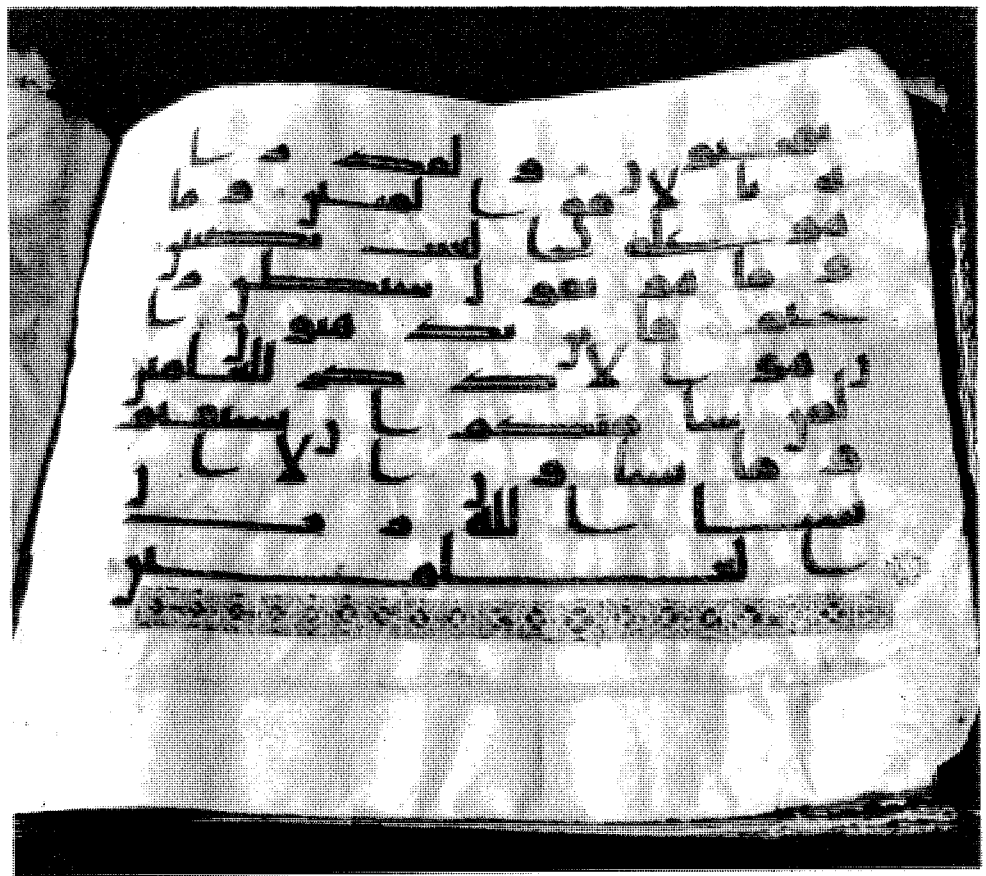 بمجنون ولقد را
ه بالافق المبين وما
هو على الغيب بضنين
وما هو بقول شيطن ر
جيم فاين تذهبون ا
ن هو الا ذكر للعلمين
لمن شا منكم ان يستقيم
وما تشاون الا ان
يشا الله رب
العلمين